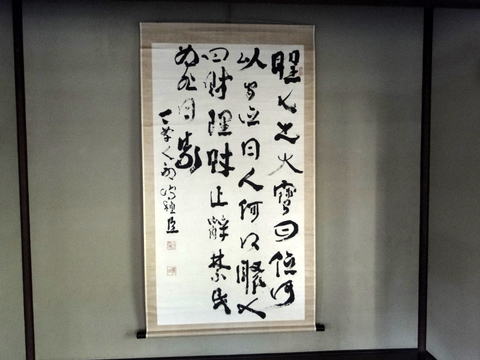 聖人之大寶曰位何
以守位曰人何以聚人
曰財理財正辭禁民
為非曰義